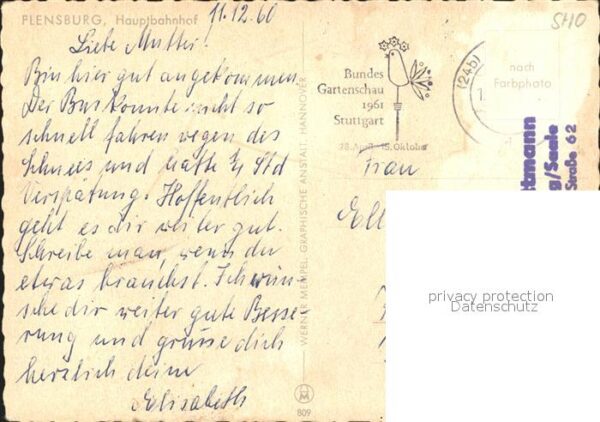 FLENSBURG, Hauptbahnhof
11.12.60
SHO
Liebe Mutter!
Bin hier gut angekommen
Der Bus konnte nicht so
schnell fahren wegen des
Schnees und hatte ½ Std
Verspätung. Hoffentlich
geht es dir weiter gut.
Schreibe man, wenn du
etwas brauchst. Ich wün-
sche dir weiter gute Besse-
rung und grüsse dich
herzlich deine
Elisabeth
WERNER MEMPEL, GRAPHISCHE ANSTALT, HANNOVER
809
Bundes
Gartenschau
1961
Stuttgart
28. April - 15. Oktober
(24b)
nach
Farbphoto
tmann
g/Seele
Straße 62
Frau
Ell
privacy protection
Datenschutz